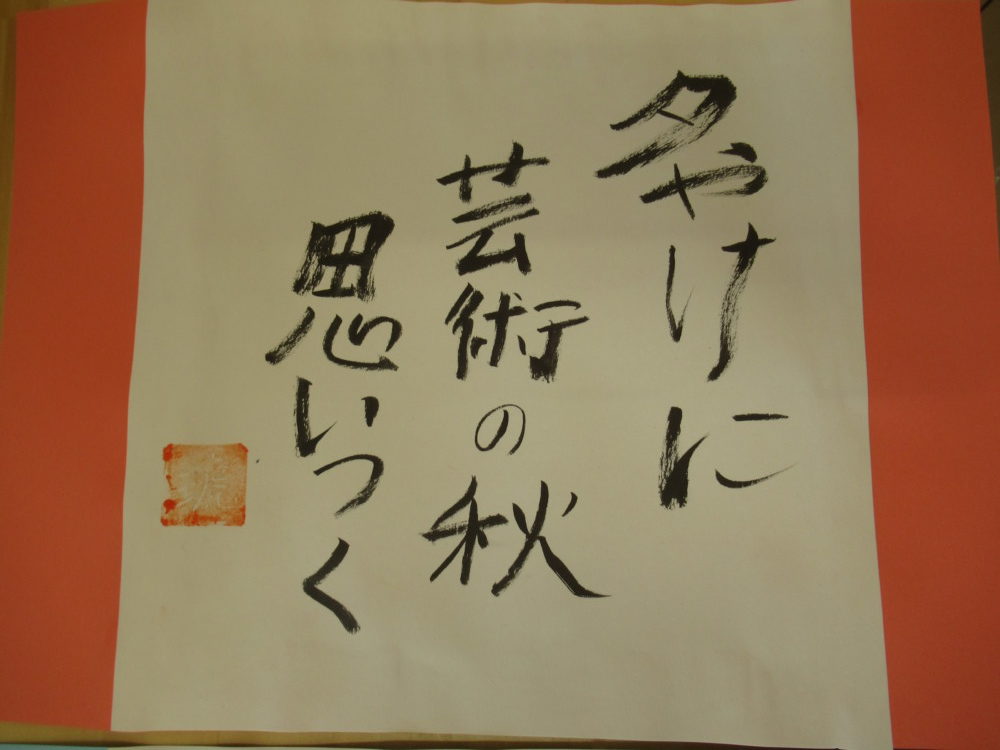 夕やけに
芸術の秋
思いつく